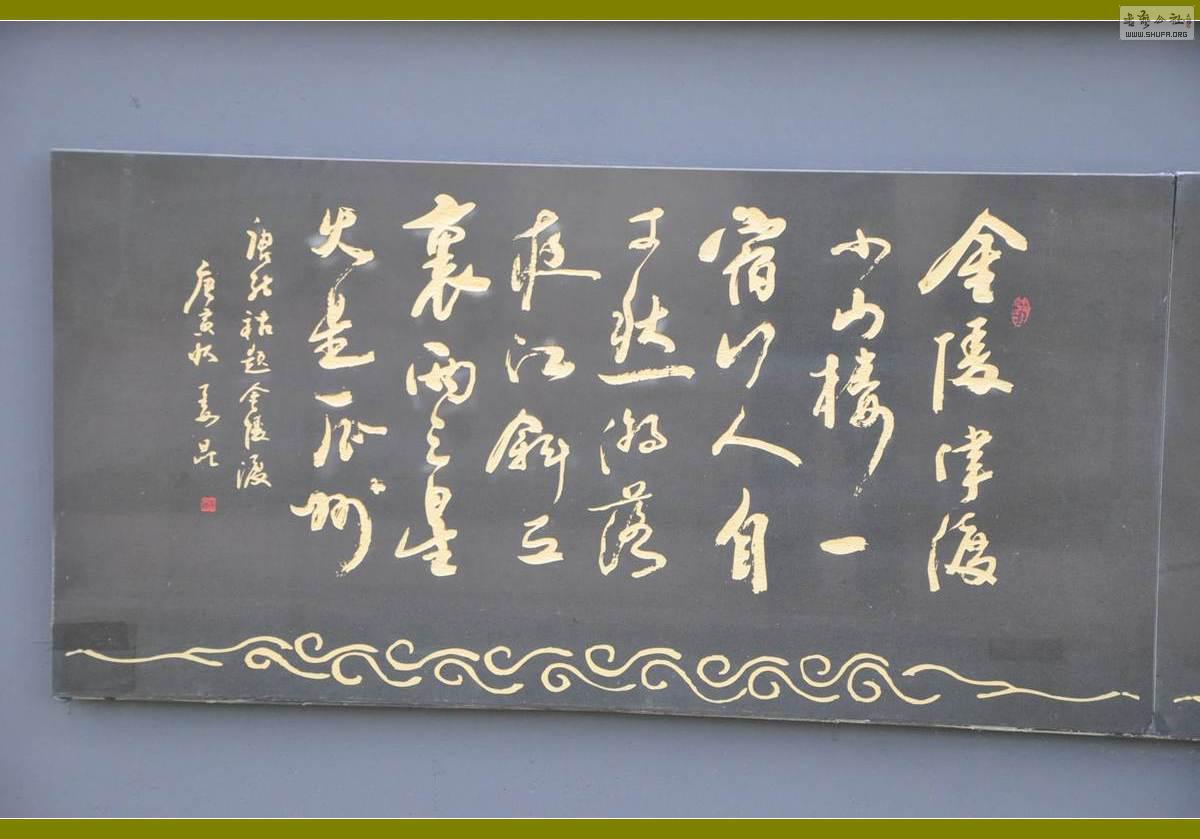 金陵津渡
小山樓一
宿行人自
可愁潮落
夜江斜月
裏兩三星
火是瓜州
唐張祜題金陵渡
庚寅秋
书艺公社
WWW.SHUFA.ORG